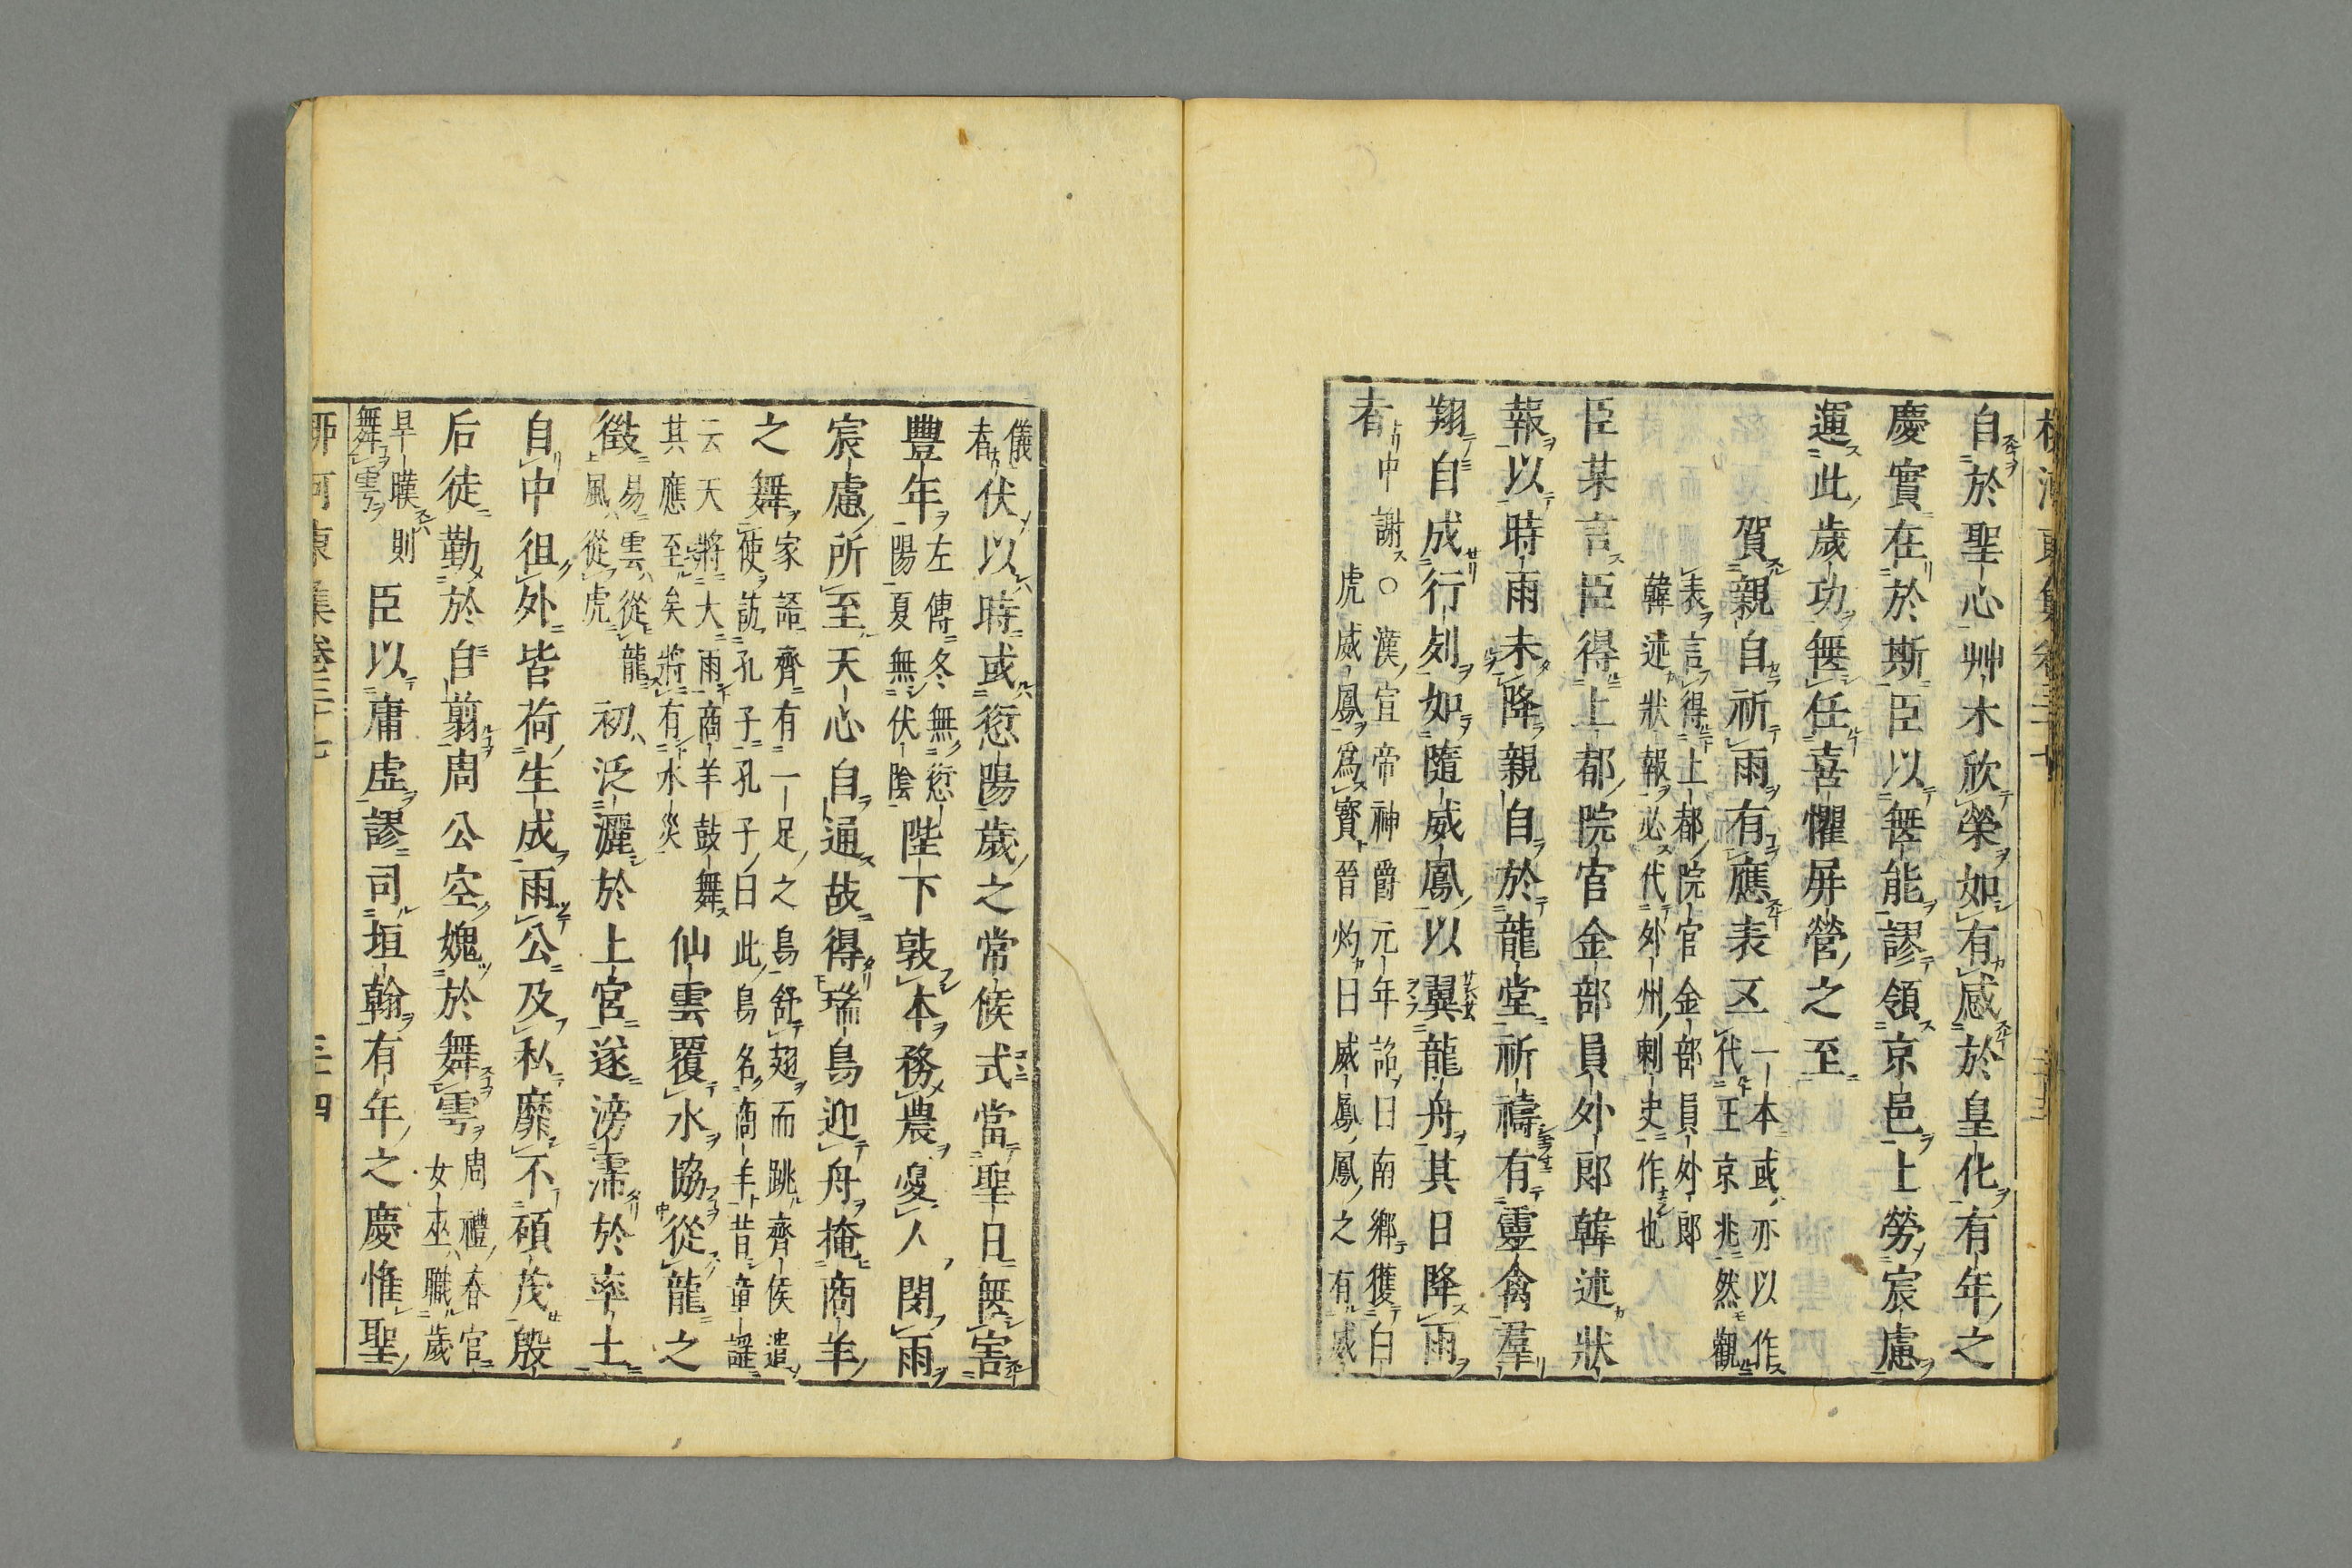 自於聖心艸木欣榮如有感於皇化有年之
慶實在於斯臣以無能謬領京邑上勞宸慮
運此歲功無任喜懼屏營之至
賀親自祈雨有應表五
一本或亦以作
代王京兆然觀
表言得上都院官金部員外郎
韓述狀報必代外州刺史作也
臣某言臣得上都院官金部員外郎韓述狀
報以時雨未降親自於龍堂祈禱有靈禽羣
翔自成行列如隨威鳳以翼龍舟其日降雨
者
中謝○漢宣帝神爵元年詔曰南郷獲白
虎威鳳為寳晉灼曰威鳳鳳之有威
儀
者
伏以時或愆陽歲之常候式當聖日無害
豐年
左傳冬無愆
陽夏無伏陰
陛下敦本務農憂人閔雨
宸慮所至天心自通故得瑞鳥迎舟掩商羊
之舞
家語齊有一足之鳥舒翅而跳齊侯遣
使訪孔子孔子曰此鳥名商羊昔童謡
云天將大雨商羊鼓舞
其應至矣將有水災
仙雲覆水協從龍之
徵
易雲從龍
風從虎
初泛灑於上官遂滂霈於率土
自中徂外皆荷生成雨公及私靡不碩茂殷
后徒勤於自翦周公空媿於舞雩
周禮春官
女巫職歲
旱暵則
舞雩
臣以庸虛謬司垣翰有年之慶惟聖
柳河東集卷三十七
三十四